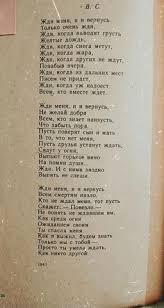 В. С.
Жди меня, и я вернусь.
Только очень жди,
Жди, когда наводят грусть
Желтые дожди,
Жди, когда снега метут,
Жди, когда жара,
Жди, когда других не ждут,
Позабыв вчера.
Жди, когда из дальних мест
Писем не придет,
Жди, когда уж надоест
Всем, кто вместе ждет.
Жди меня, и я вернусь,
Не желай добра
Всем, кто знает наизусть,
Что забыть пора.
Пусть поверят сын и мать
В то, что нет меня,
Пусть друзья устанут ждать,
Сядут у огня,
Выпьют горькое вино
На помин души...
Жди. И с ними заодно
Выпить не спеши.
Жди меня, и я вернусь
Всем смертям назло.
Кто не ждал меня, тот пусть
Скажет: — Повезло.—
Не понять не ждавшим им,
Как среди огня
Ожиданием своим
Ты спасла меня.
Как я выжил, будем знать
Только мы с тобой —
Просто ты умела ждать,
Как никто другой
1941